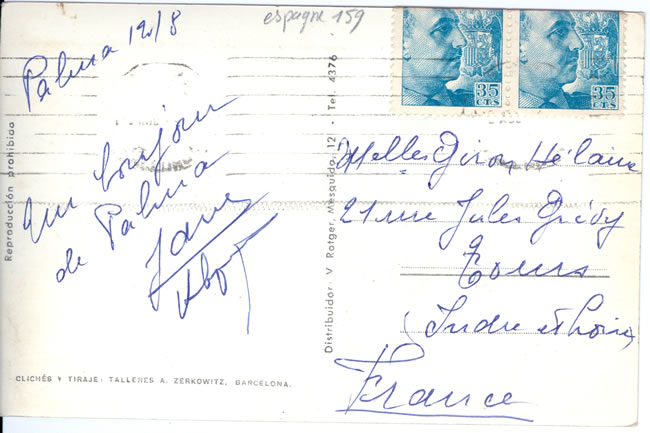 espagne 159
Palma 12/8
Un bonjour
de Palma
35
CTS
35
CTS
Melles Giron Hélaine
21 rue Jules Grévy
Tours
(Indre et Loire)
France
Reproducción prohibida
Distribuidor V Rotger, Mesquida, 12 • Tel. 4376
CLICHÉS Y TIRAJE: TALLERES A. ZERKOWITZ, BARCELONA.